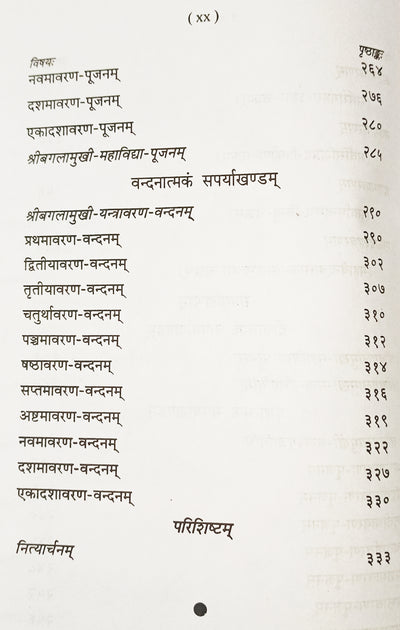 ( xx )
विषयः पृष्ठाङ्कः
नवमावरण-पूजनम् २६४
दशमावरण-पूजनम् २७६
एकादशावरण-पूजनम् २८०
श्रीबगलामुखी-महाविद्या-पूजनम् २८५
वन्दनात्मकं सपर्याखण्डम्
श्रीबगलामुखी-यन्त्रावरण-वन्दनम् २९०
प्रथमावरण-वन्दनम् २९०
द्वितीयावरण-वन्दनम् ३०२
तृतीयावरण-वन्दनम् ३०७
चतुर्थावरण-वन्दनम् ३१०
पञ्चमावरण-वन्दनम् ३१२
षष्ठावरण-वन्दनम् ३१४
सप्तमावरण-वन्दनम् ३१६
अष्टमावरण-वन्दनम् ३१९
नवमावरण-वन्दनम् ३२२
दशमावरण-वन्दनम् ३२७
एकादशावरण-वन्दनम् ३३०
परिशिष्टम्
नित्यार्चनम् ३३३